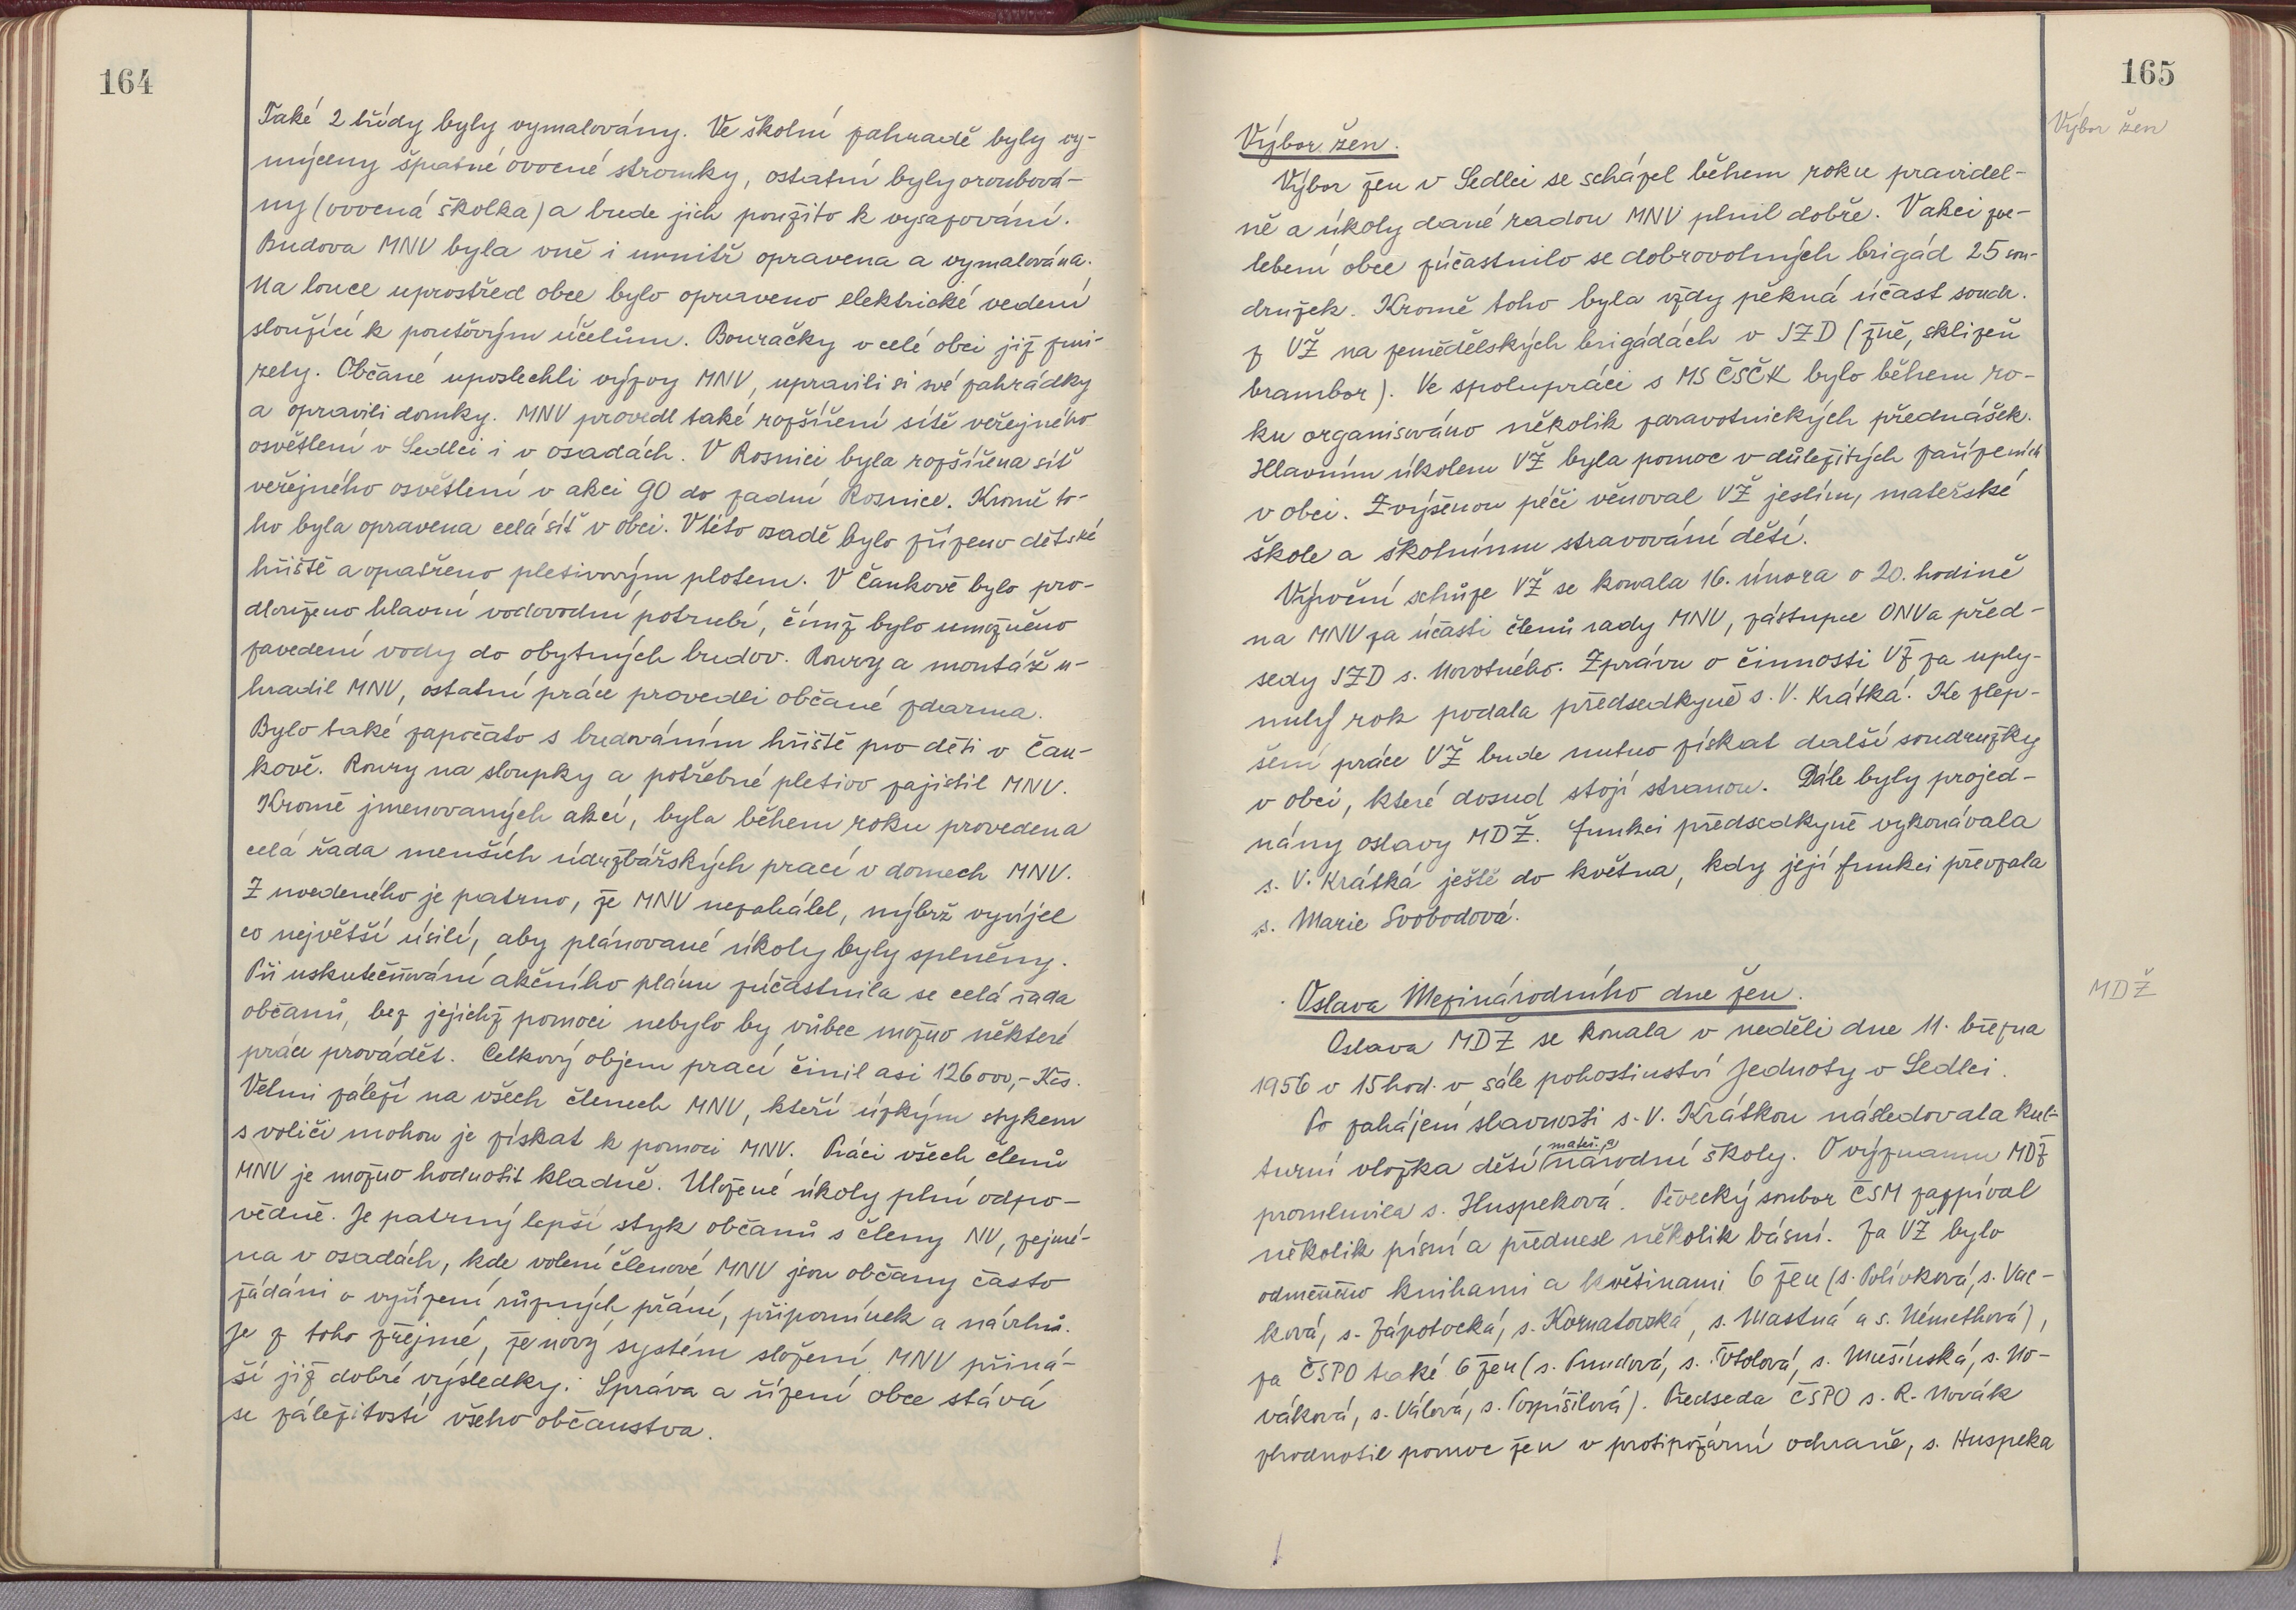 164
Také 2 třídy byly vymalovány. Ve školní zahradě byly vy-
mýceny špatné ovocné stromky, ostatní byly oroubová-
ny (ovocná školka) a bude jich použito k vysazování.
Budova MNV byla vně i uvnitř opravena a vymalována.
Na louce uprostřed obce bylo opraveno elektrické vedení
sloužící k pouťovým účelům. Bouračky v celé obci již zmi-
zely. Občané uposlechli výzvy MNV, upravili si své zahrádky
a opravili domky. MNV provedl také rozšíření sítě veřejného
osvětlení v Sedleci i v osadách. V Rosnici byla rozšířena síť
veřejného osvětlení v akci 90 do zadní Rosnice. Kromě to-
ho byla opravena celá síť v obci. V této osadě bylo zřízeno dětské
hřiště a opatřeno pletivovým plotem. V Čankově bylo pro-
dlouženo hlavní vodovodní potrubí, čímž bylo umožněno
zavedení vody do obytných budov. Roury a montáž u-
hradil MNV, ostatní práce provedli občané zdarma.
Bylo také započato s budováním hřiště pro děti v Čan-
kově. Roury na sloupky a potřebné pletivo zajistil MNV.
Kromě jmenovaných akcí, byla během roku provedena
celá řada menších údržbářských prací v domech MNV.
Z uvedeného je patrno, že MNV nezahálel, nýbrž vyvíjel
co největší úsilí, aby plánované úkoly byly splněny.
Při uskutečňování akčního plánu zúčastnila se celá řada
občanů, bez jejichž pomoci nebylo by vůbec možno některé
práce provádět. Celkový objem prací činil asi 126000,- Kčs.
Velmi záleží na všech členech MNV, kteří úzkým stykem
s voliči mohou je získat k pomoci MNV. Práci všech členů
MNV je možno hodnotit kladně. Uložené úkoly plní odpo-
vědně. Je patrný lepší styk občanů s členy NV, zejmé-
na v osadách, kde volení členové MNV jsou občany často
žádáni o vyřízení různých přání, připomínek a návrhů.
Je z toho zřejmé, že nový systém složení MNV přiná-
ší již dobré výsledky. Správa a řízení obce stává
se záležitostí všeho občanstva.
165
Výbor žen
Výbor žen.
Výbor žen v Sedleci se scházel během roku pravidel-
ně a úkoly dané radou MNV plnil dobře. V akci zve-
lebení obce zúčastnilo se dobrovolných brigád 25 sou-
družek. Kromě toho byla vždy pěkná účast soudr.
z VŽ na zemědělských brigádách v JZD (žně, sklizeň
brambor). Ve spolupráci s MS ČSČK bylo během ro-
ku organisováno několik zdravotnických přednášek.
Hlavním úkolem VŽ byla pomoc v důležitých zařízeních
v obci. Zvýšenou péči věnoval VŽ jeslím, mateřské
škole a školnímu stravování dětí.
Výroční schůze VŽ se konala 16. února o 20. hodině
na MNV za účasti členů rady MNV, zástupce ONV a před-
sedy JZD s. Novotného. Zprávu o činnosti VŽ za uply-
nulý rok podala předsedkyně s. V. Krátká. Ke zlep-
šení práce VŽ bude nutno získat další soudružky
v obci, které dosud stojí stranou. Dále byly projed-
nány oslavy MDŽ. Funkci předsedkyně vykonávala
s. V. Krátká ještě do května, kdy její funkci převzala
s. Marie Svobodová.
Oslava Mezinárodního dne žen.
MDŽ
Oslava MDŽ se konala v neděli dne 11. března
1956 v 15 hod. v sále pohostinství Jednoty v Sedleci.
Po zahájení slavnosti s. V. Krátkou následovala kul-
mateř. a
turní vložka dětí národní školy. O významu MDŽ
promluvila s. Huspeková. Pěvecký soubor ČSM zazpíval
několik písní a přednesl několik básní. Za VŽ bylo
odměněno knihami a květinami 6 žen (s. Polívková, s. Vac-
ková, s. Zápotocká, s. Kornatovská, s. Mastná a s. Némethová),
za ČSPO také 6 žen (s. Pundová, s. s. Mušinská, s. No-
váková, s. Válová, s. Pospíšilová). Předseda ČSPO s. R. Novák
zhodnotil pomoc žen v protipožární ochraně, s. Huspeka